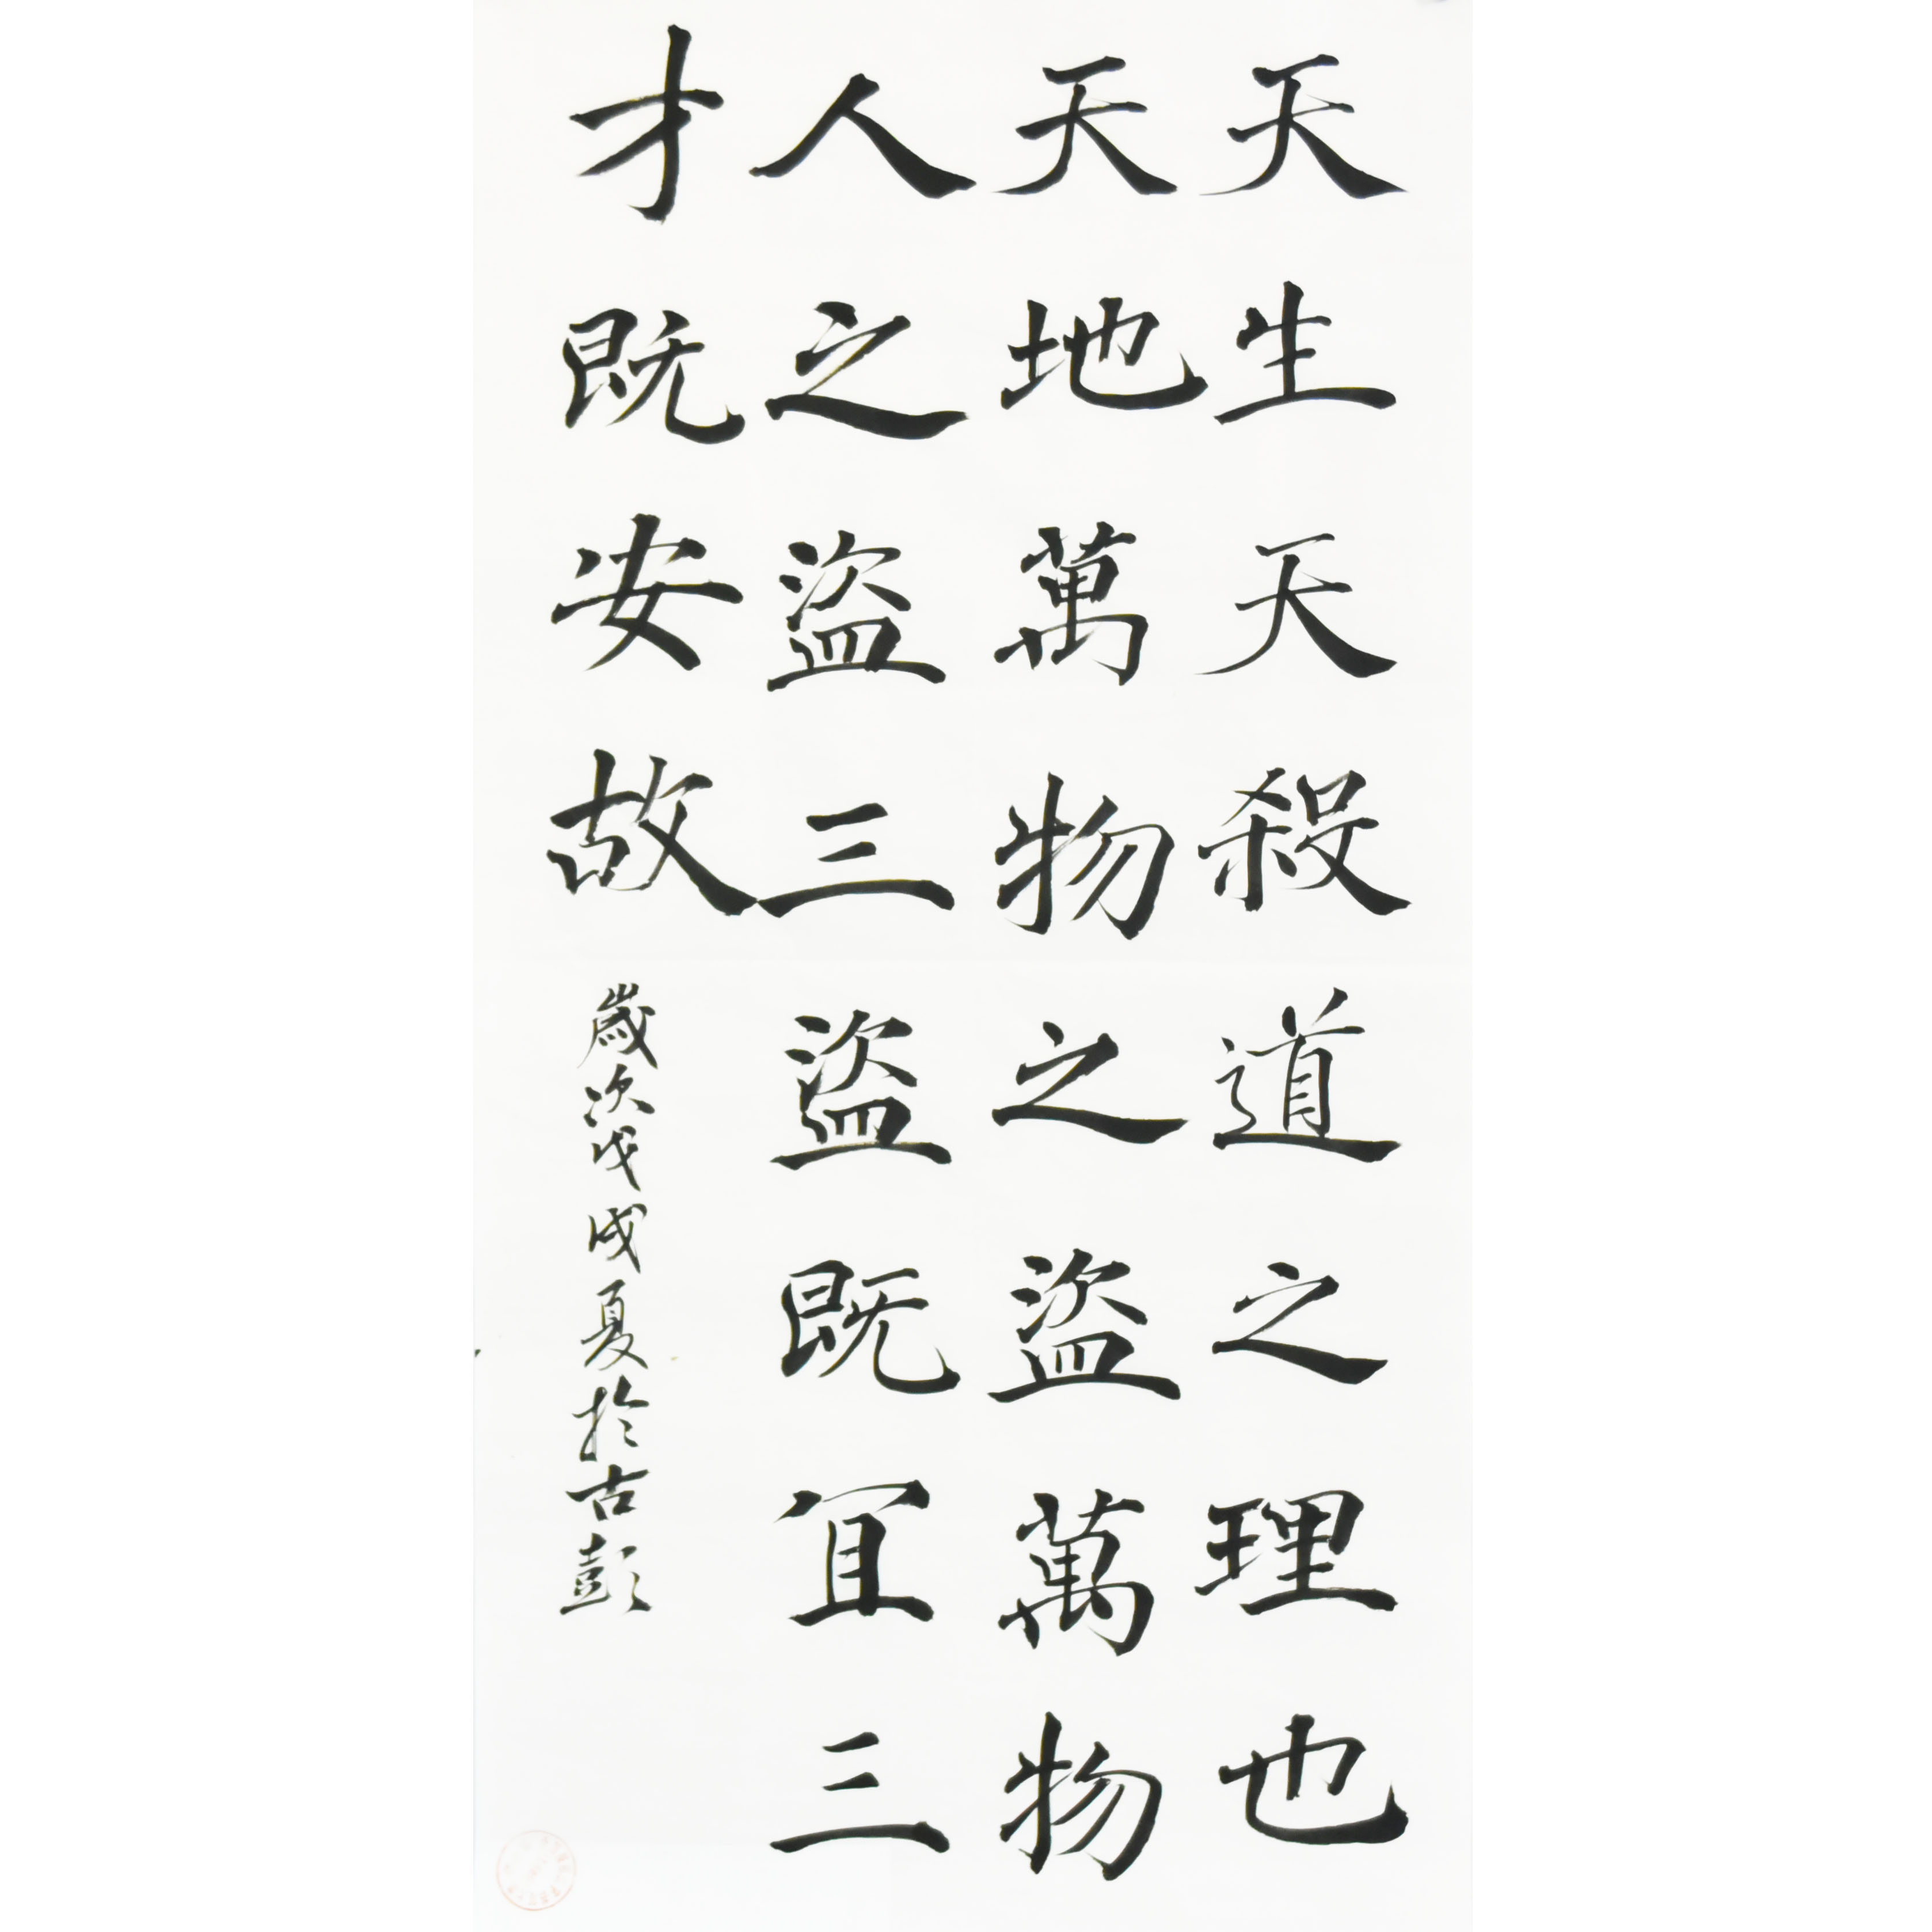 天生天殺道之理也
天地萬物之盜萬物
人之盜三盜既冝三
才既安故
歲次戊戌夏於古彭